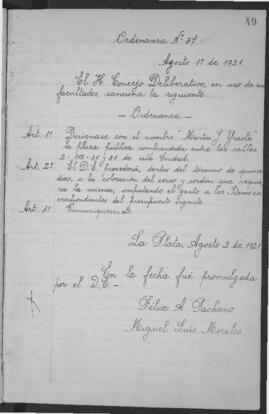 49
Ordenanza Nº 57.
Agosto 1º de 1921.
El H. Concejo Deliberativo, en uso de sus
facultades, sanciona la siguiente.
— Ordenanza —
Art. 1º Designase con el nombre "Martin J. Iraola"
la plaza pública comprendida entre las calles
2 - 115 - 30 y 31 de esta Ciudad.
Art. 2º El D. E. procederá, dentro del término de quince
dias, a la colocación del cerco y cordon que requie
ra la misma, imputando el gasto a los Items co-
rrespondientes del presupuesto vigente.
Art. 3º Comuniquese, etc.
La Plata, Agosto 3 de 1921
Con la fecha fué promulgada
por el D. E. —
Félix A. Pachano.
Miguel Luis Morales.